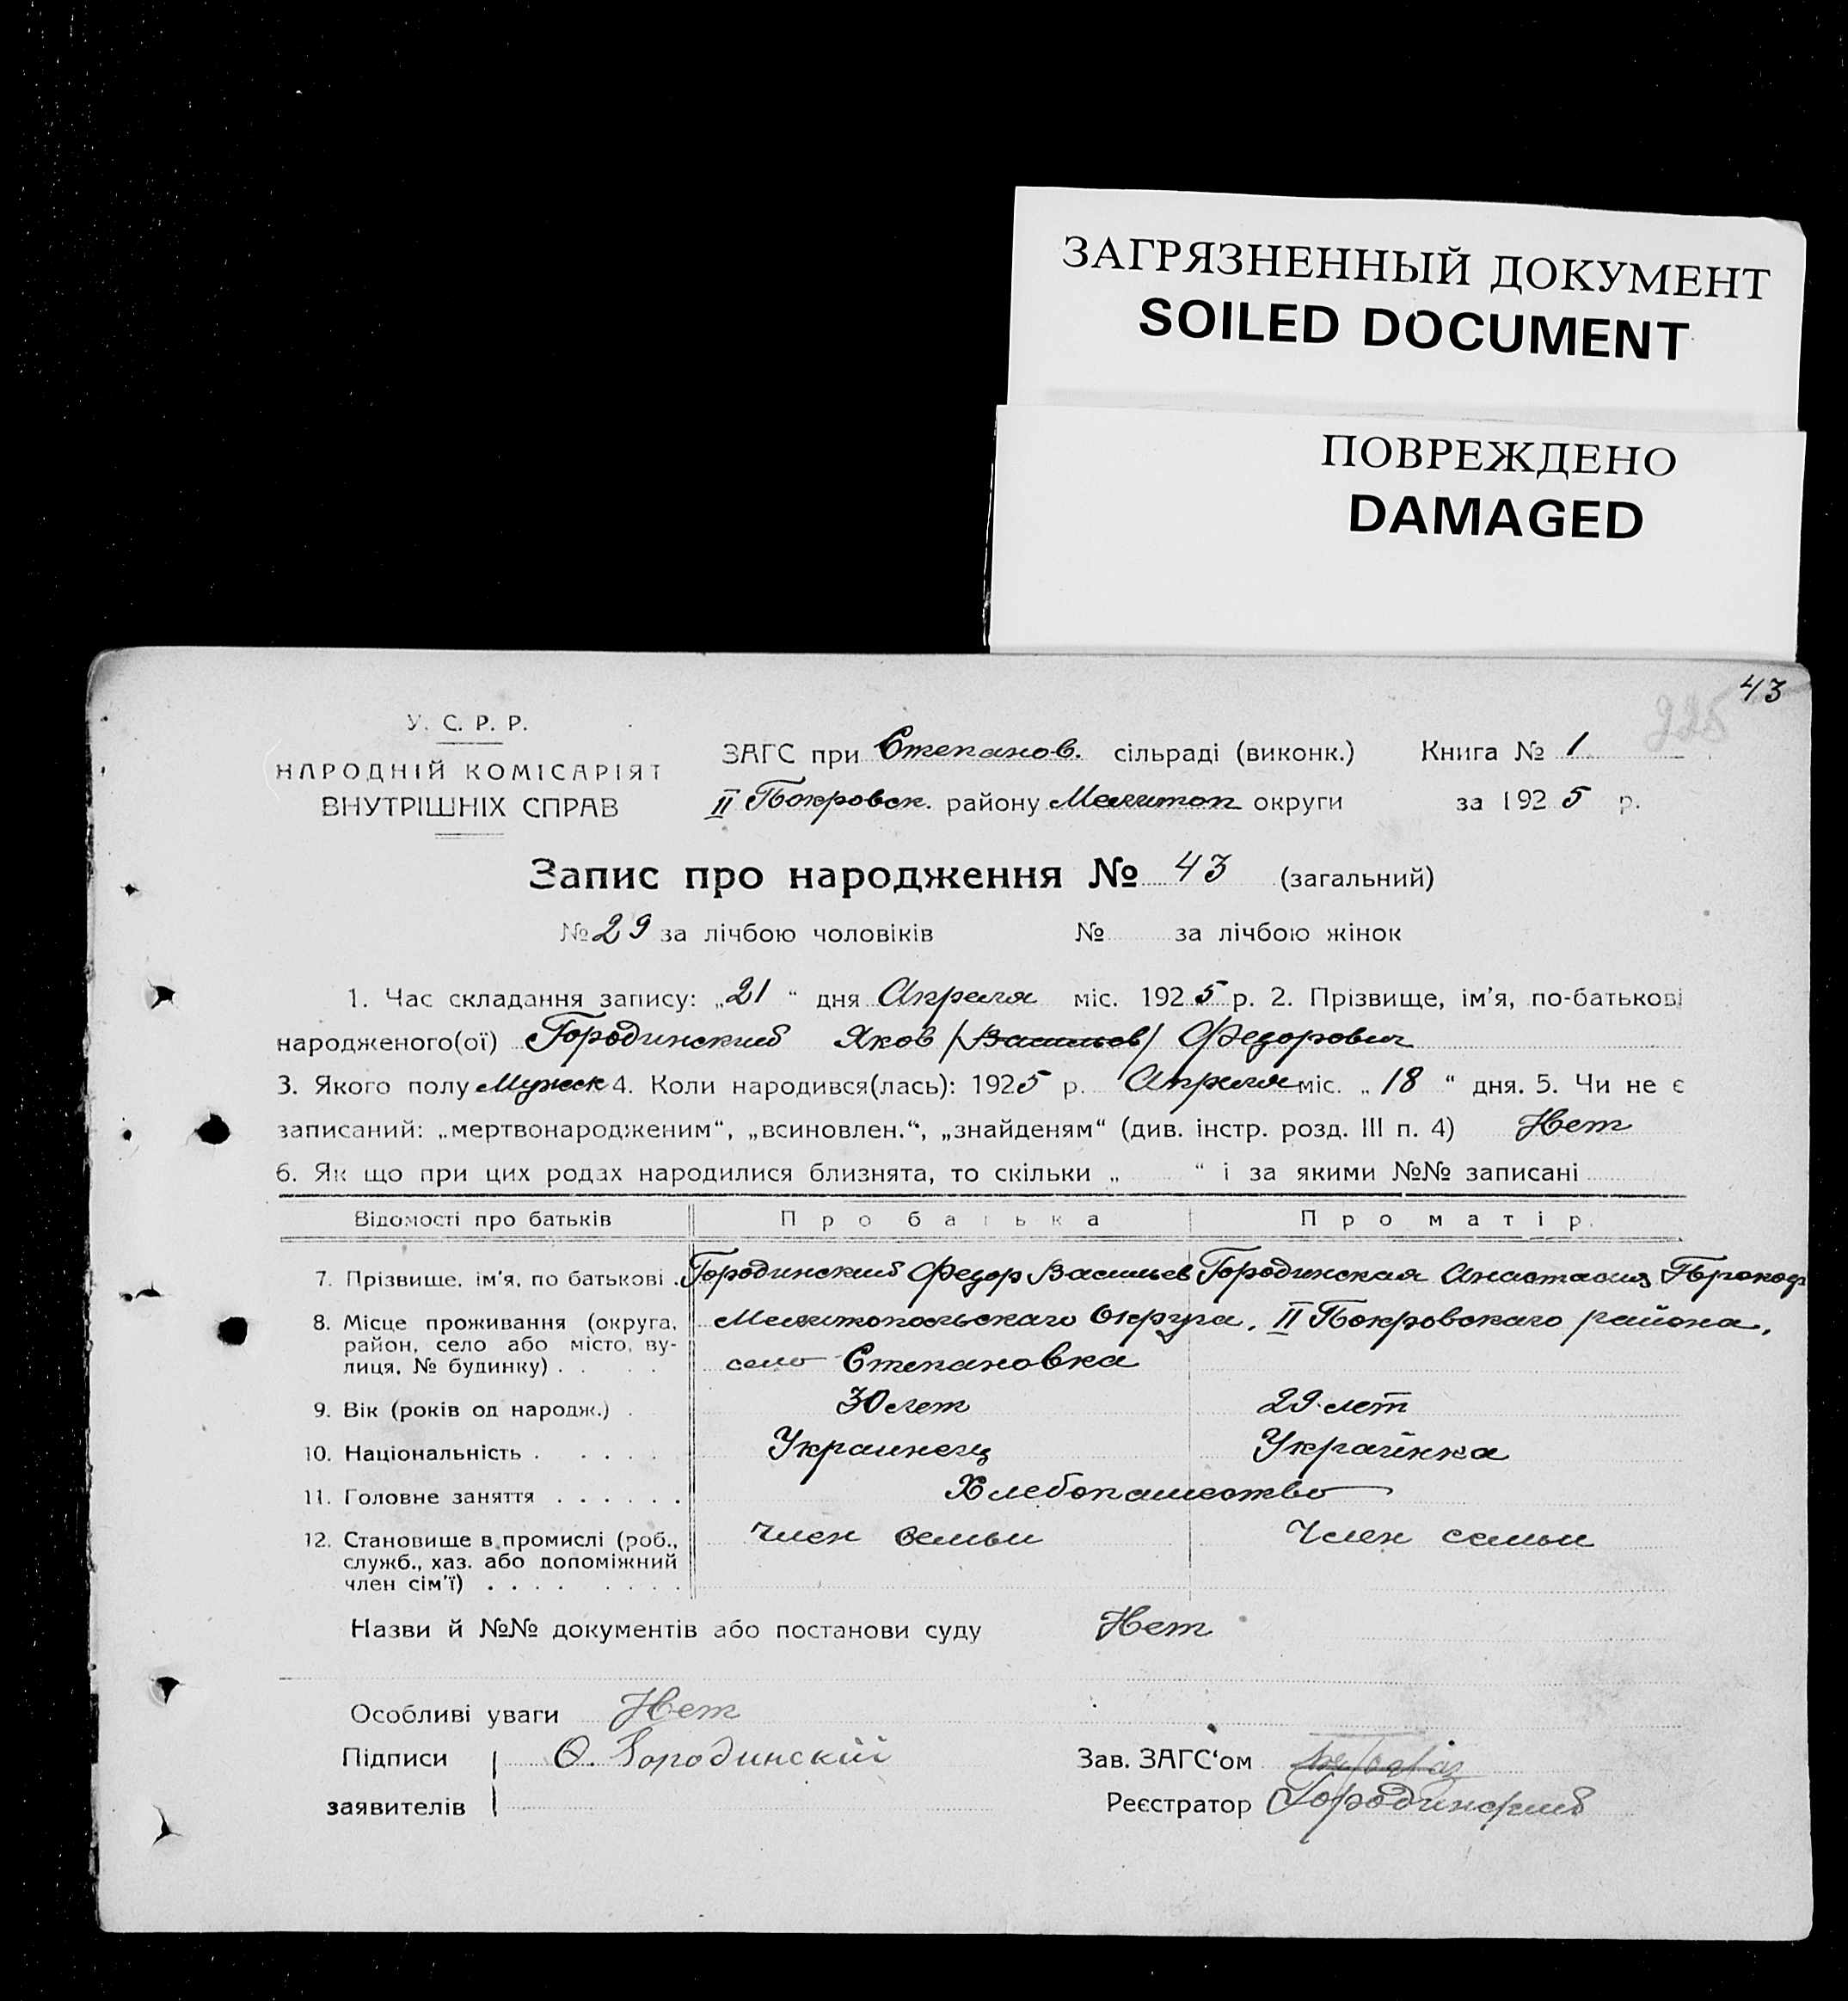 ЗАГРЯЗНЕННЫЙ ДОКУМЕНТ
SOILED DOCUMENT
ПОВРЕЖДЕНО
DAMAGED
43
225
У. С. Р. Р.
НАРОДНІЙ КОМІСАРІЯТ
ВНУТРІШНІХ СПРАВ
ЗАГС при Степанов. сільраді (виконк.) Книга № 1
II Покровск. району Мелитоп округи за 1925 р.
Запис про народження № 43 (загальний)
№ 29 за лічбою чоловіків № за лічбою жінок
1. Час складання запису: „21“ дня Апреля міс. 1925 р. 2. Прізвище, ім'я, по-батькові
народженого(ої) Городинский Яков /Васильев/ Федорович
3. Якого полу Мужск 4. Коли народився(лась): 1925 р. Апреля міс. „18“ дня. 5. Чи не є
записаний: „мертвонародженим“, „всиновлен.“, „знайденям“ (див. інстр. розд. III п. 4) Нет
6. Як що при цих родах народилися близнята, то скільки „ “ і за якими №№ записані
Відомості про батьків Про батька Про матір.
7. Прізвище, ім'я, по батькові . Городинский Федор Васильев Городинская Анастасия Прокоф
8. Місце проживання (округа, Мелитопольскаго Округа, II Покровскаго района,
район, село або місто, ву-
лиця, № будинку) . . . . село Степановка
9. Вік (років од народж.) . 30 лет 29 лет
10. Національність . . . . . Украинец Украінка
11. Головне заняття . . . . . . Хлебопашество
12. Становище в промислі (роб., Член семьи Член семьи
служб., хаз. або допоміжний
член сім'ї) . . . . . . . .
Назви й №№ документів або постанови суду Нет
Особливі уваги Нет
Підписи Ѳ. Городинскій Зав. ЗАГС'ом
заявителів Реєстратор Городинский